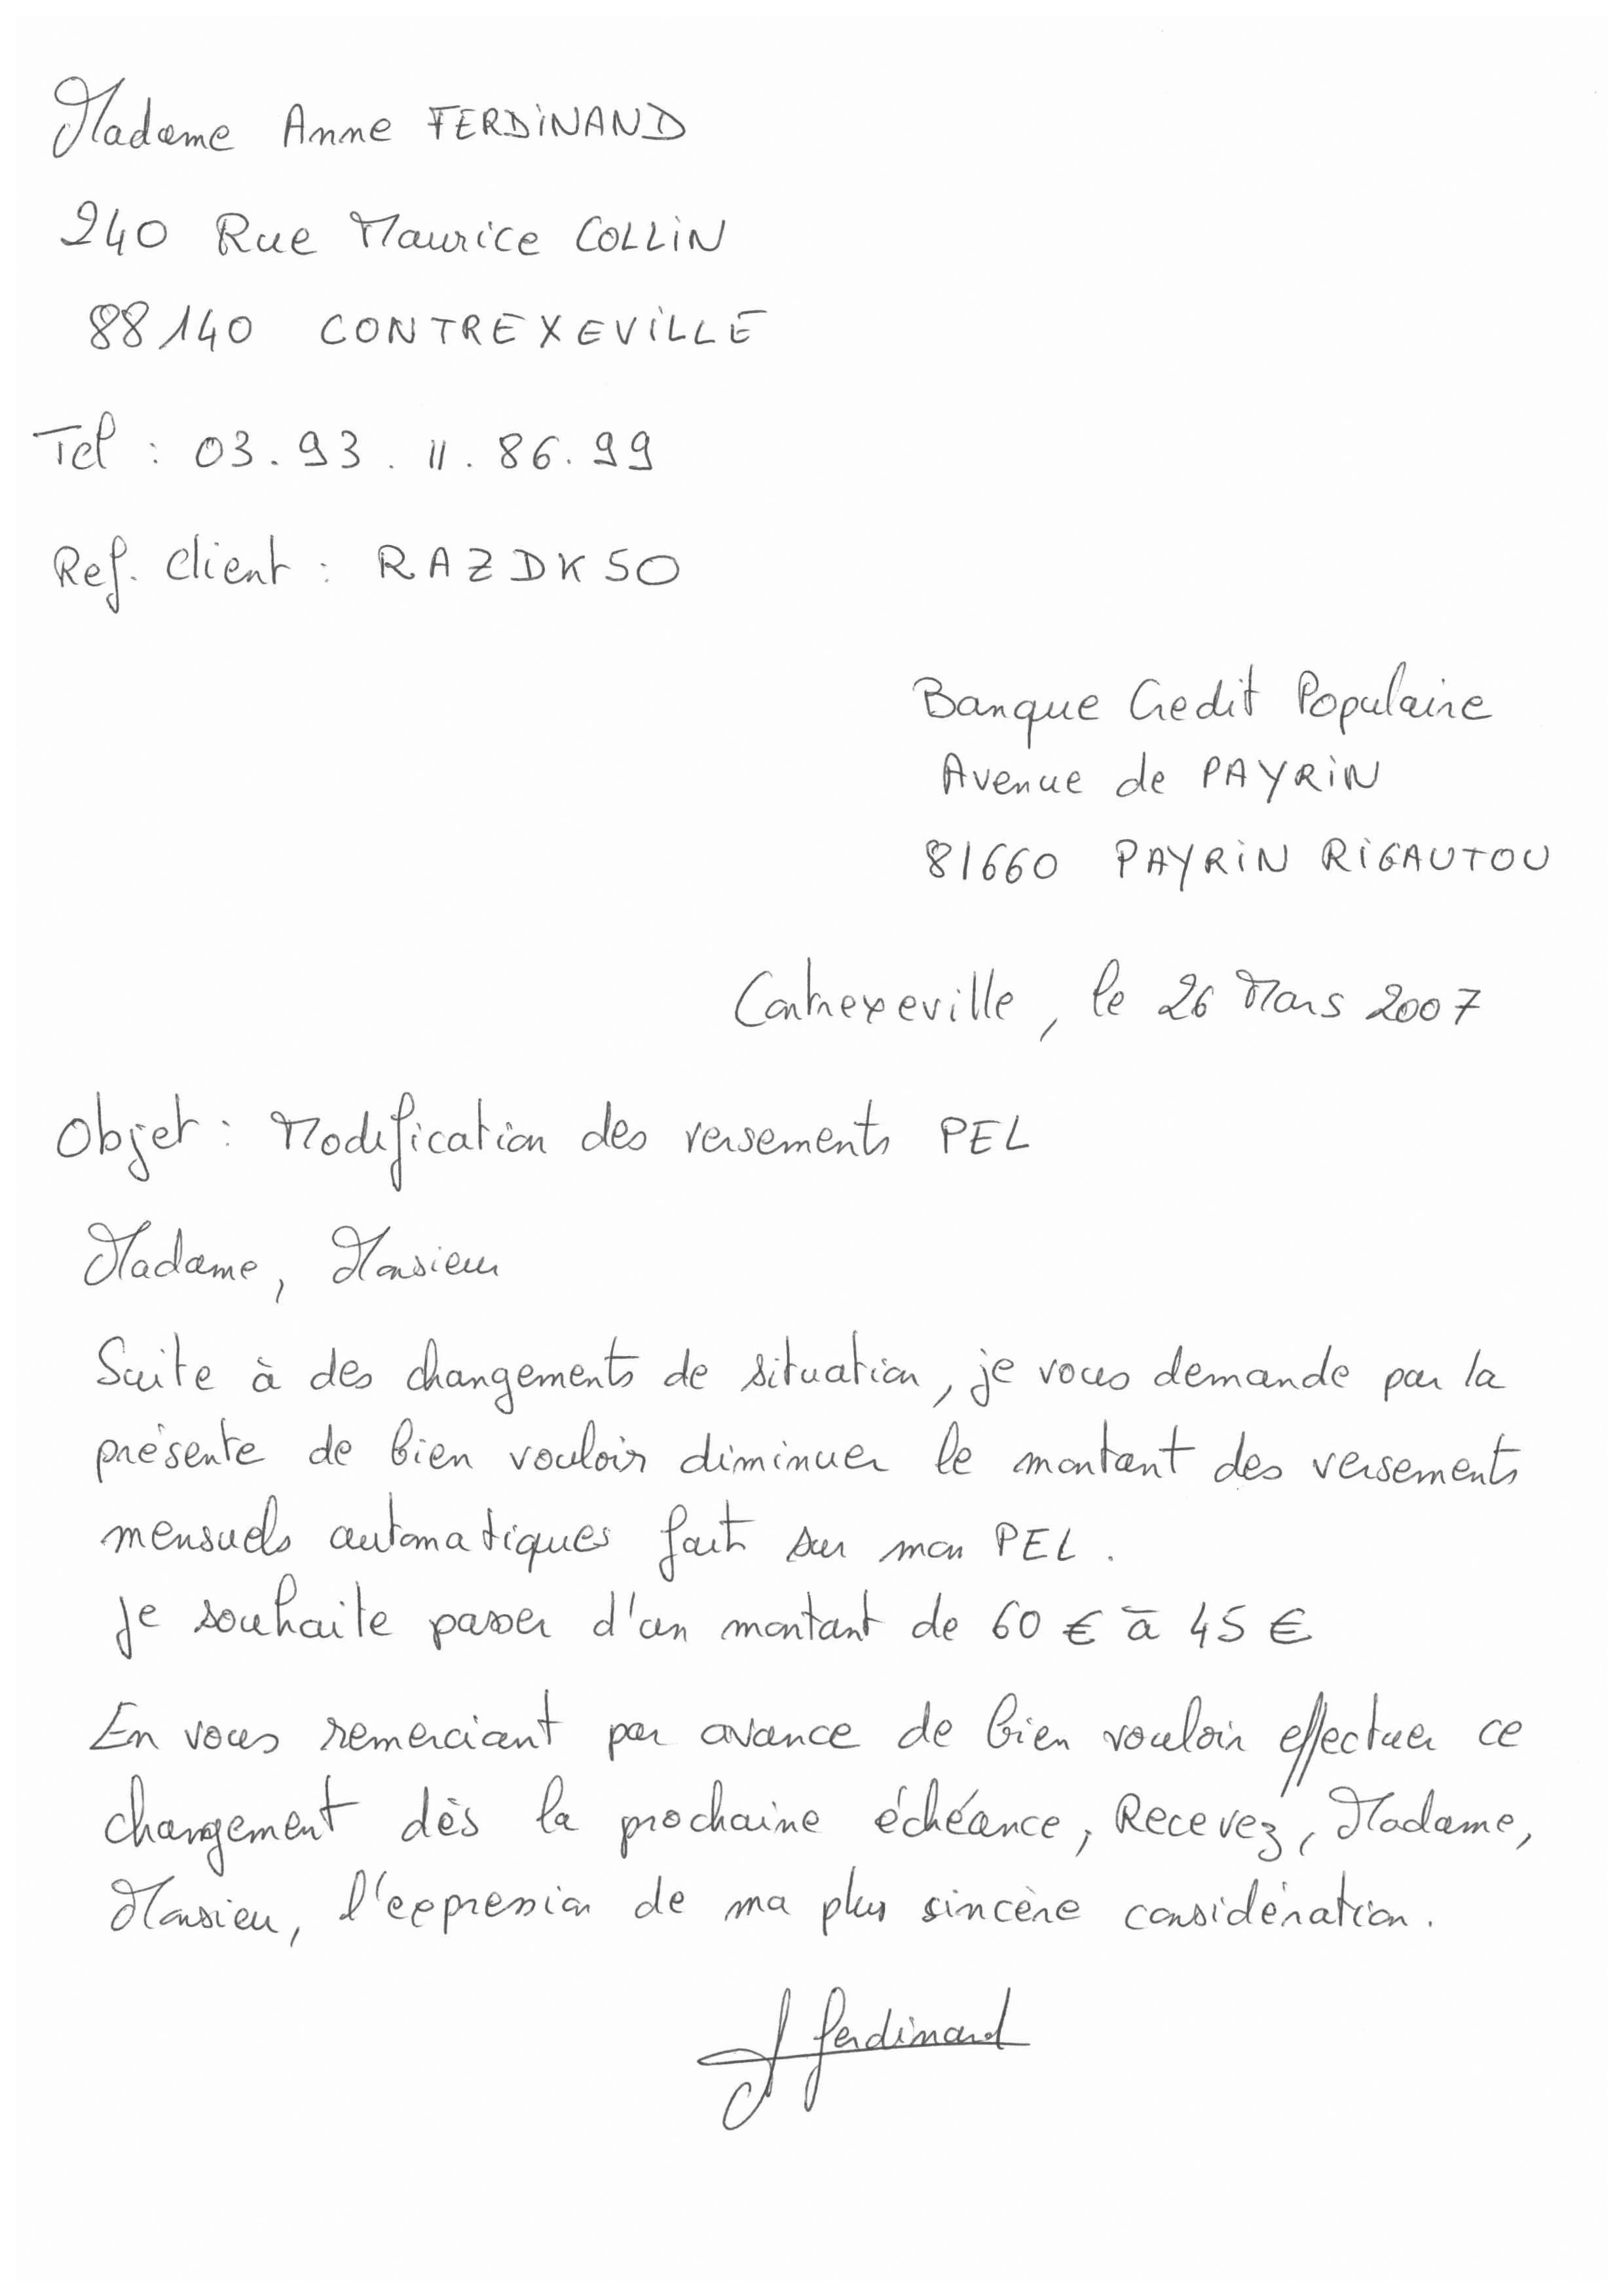 Madame Anne FERDINAND
240 Rue Maurice COLLIN
88140 CONTREXEVILLE
Tel : 03.93.11.86.99
Ref. client : RAZDK50
Banque Credit Populaire
Avenue de PAYRIN
81660 PAYRIN RIGAUTOU
Contrexeville, le 26 Mars 2007
Objet : Modification des versements PEL
Madame, Monsieur
Suite à des changements de situation, je vous demande par la
présente de bien vouloir diminuer le montant des versements
mensuels automatiques fait sur mon PEL.
Je souhaite passer d'un montant de 60 € à 45 €
En vous remerciant par avance de bien vouloir effectuer ce
changement dès la prochaine échéance, Recevez, Madame,
Monsieur, l'expression de ma plus sincère considération.
A Ferdinand